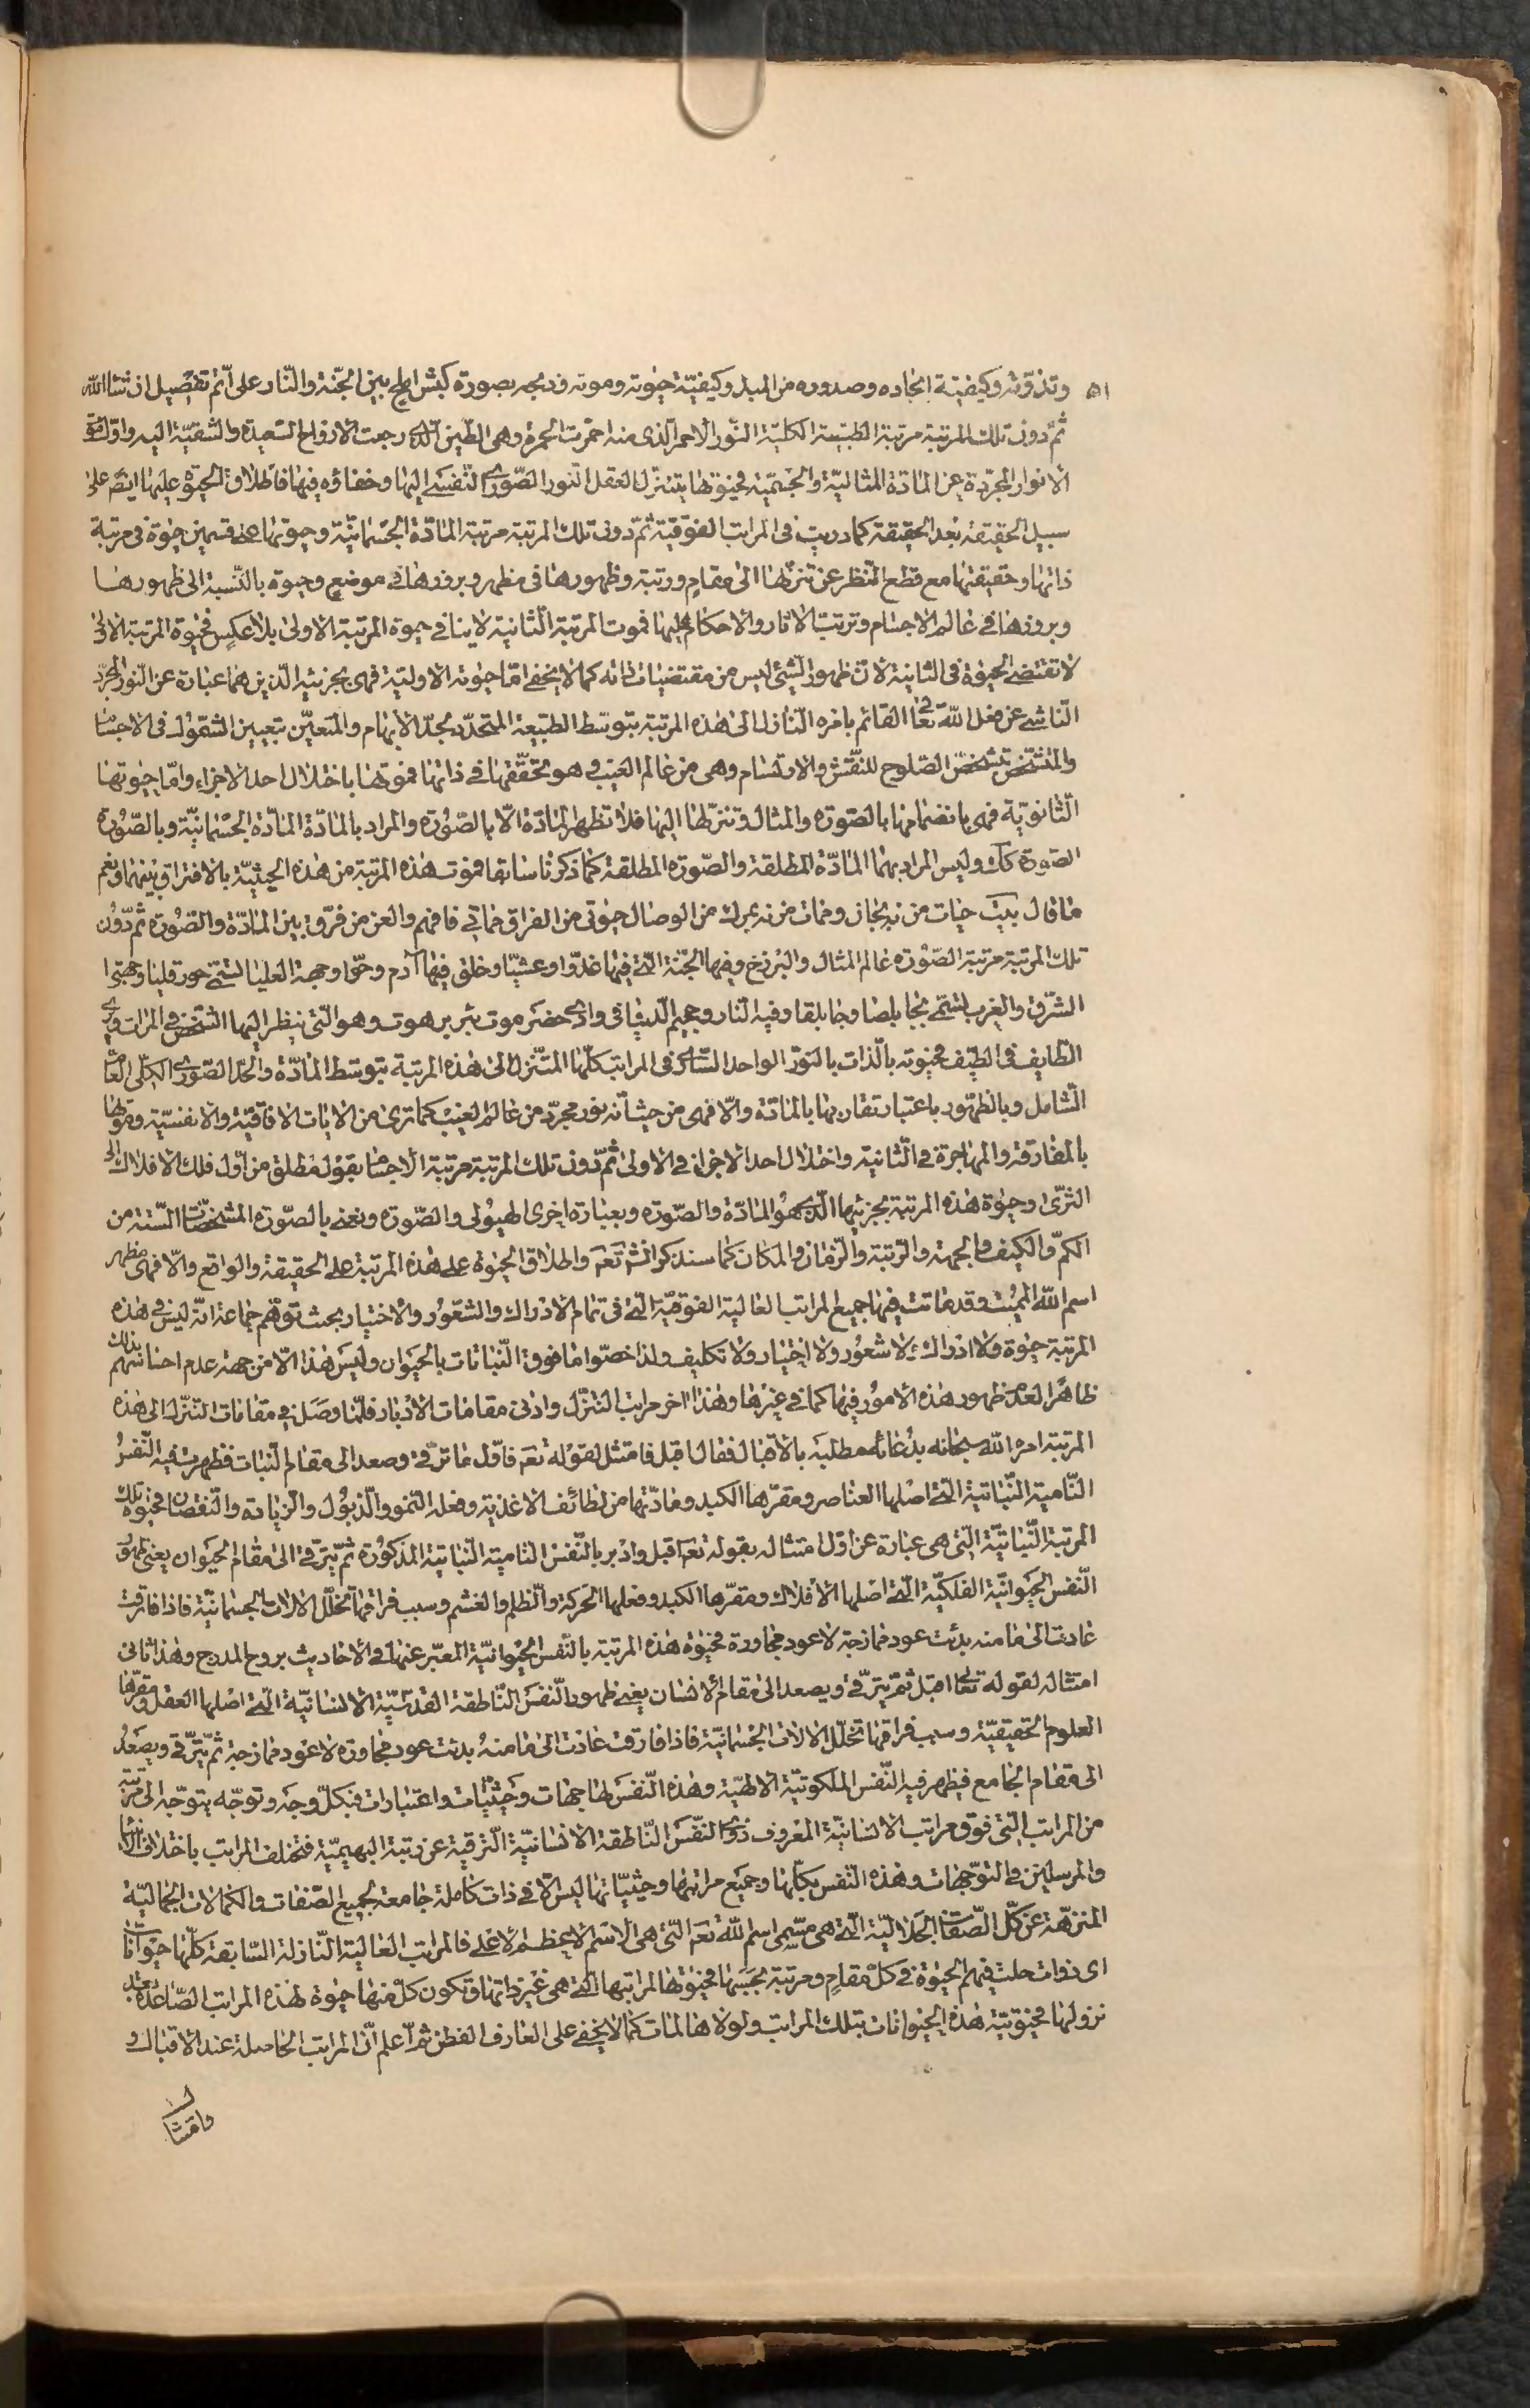 ٥١ وتذوّته وكيفيّة ايجاده وصدوره من المبدء وكيفيّة حيوته وموته وذبحه بصورة كبش املح بين الجنّة والنّار على اتّم تفصيل ان شاء اللّه
ثمّ دون تلك المرتبة مرتبة الطّبيعة الكلّيّة النّور الاحمر الّذى منه احمرت الحمرة وهى الطّين الّذى رجعت الارواح السّعيدة والشّقيّة اليه واوّل
الانوار المجرّدة عن المادّة المثاليّة والجسميّة فحيوتها بتنزّل العقل النّور الصّورى النّفسى اليها وخفاؤه فيها فاطلاق الحيوة عليها ايضً على
سبيل الحقيقة بعد الحقيقة كما دريت فى المراتب الفوقيّة ثمّ دون تلك المرتبة مرتبة المادّة الجسمانيّة وحيوتها على قسمين حيوة فى مرتبة
ذاتها وحقيقتها مع قطع النّظر عن تنزّلها الى مقام ورتبة وظهورها فى مظهر وبروزها فى موضع وحيوة بالنّسبة الى ظهورها
وبروزها فى عالم الاجسام وترتّب الاثار والاحكام عليها فموت المرتبة الثّانية لا ينافى حيوة المرتبة الاولى بلا عكس فحيوة المرتبة الاولى
لا تقتضى الحيوة فى الثانية لان ظهور الشّئ ليس من مقتضيات ذاته كما لا يخفى امّا حيوته الاوليّة فهى بجزئيه الّذين هما عبارة عن النّور المجرّد
النّاشى عن فعل اللّه تعالى القائم بامره النّازل الى هذه المرتبة بتوسّط الطّبيعة المتحدّد بحدّ الابهام والمتعيّن بتعيين الشّمول فى الاجسام
والمتشخّص بتشخّص الصّلوح للنّقش والارتسام وهى من عالم الغيب وهو تحقّقها فى ذاتها فموتها باختلال احد الاجزاء وامّا حيوتها
الثّانويّة فهى بانضمامها بالصّورة والمثال وتنزّلها اليها فلا تظهر المادّة الّا بالصّورة والمراد بالمادّة المادّة الجسمانيّة وبالصّورة
الصّورة كك وليس المراد بهما المادّة المطلقة والصّورة المطلقة كما ذكرنا سابقا فموت هذه المرتبة من هذه الحيثيّة بالافتراق بينهما ونعم
ما قال بيت حيات من نه بجان ومات من نه بمرك من الوصال حيوتى من الفراق مماتى فافهم والعن من فرّق بين المادّة والصّورة ثمّ دون
تلك المرتبة مرتبة الصّورة عالم المثال والبرزخ وفيها الجنّة الّتى فيها غدّوا وعشيّا وخلق فيها آدم وحوّا وجهة العليا تسمّى هورقليا وجهتا
الشّرق والغرب تسمّى بجابلصا وجابلقا وفيه النّار وجحيم الدّنيا فى وادى حضرموت بئر برهوت وهو الّتى ينظر اليها الشّخص فى المرات ويرى
الطّايف فى الطّيف فحيوته بالذّات بالنّور الواحد السّارى فى المراتب كلّها المتنزّل الى هذه المرتبة بتوسّط المادّة والحدّ الصّورى الكلّى العام
الشّامل وبالظّهور باعتبار تقارنها بالمادّة والّا فهى من حيث انّه نور مجرّد من عالم الغيب كما ترى من الايات الافاقيّة والانفسيّة وموتها
بالمفارقة والمهاجرة فى الثّانية واختلال احد الاجزاء فى الاولى ثمّ دون تلك المرتبة مرتبة الاجسام بقول مطلق من اوّل فلك الافلاك الى
الثّرى وحيوة هذه المرتبة بجزئيها الّذى هو المادّة والصّورة وبعبارة اخرى الهيولى والصّورة ونعنى بالصّورة المشخّصات السّتة من
الكمّ والكيف والجهة والرّتبة والزّمان والمكان كما سنذكر انشٓ تعم واطلاق الحيوة على هذه المرتبة على الحقيقة والواقع والّا فهى مظهر
اسم اللّه المميت وقد ماتت فيها جميع المراتب العالية الفوقيّة الّتى فى تمام الادراك والشّعور والاختيار بحيث توهّم جماعة انّه ليس فى هذه
المرتبة حيوة ولا ادراك ولا شعور ولا اختيار ولا تكليف ولذا خصّوا ما فوق النّباتات بالحيوان وليس هذا الّا من جهة عدم احساسهم بذلك
ظاهرا لعدم ظهور هذه الامور فيها كما فى غيرها وهذا اخر مراتب التنزّل وادنى مقامات الادبار فلمّا وصل فى مقامات التنزّل الى هذه
المرتبة امره اللّه سبحانه بدعائه مطلبه بالاقبال فقال اقبل فامتثل لقوله تعم فاوّل ما ترقّى وصعد الى مقام النّبات فظهرت فيه النّفس
النّامية النّباتية الّتى اصلها العناصر ومقرّها الكبد ومادّتها من لطائف الاغذية وفعله النّمو والذّبول والزّيادة والنّقصان فحيوة تلك
المرتبة النّباتيّة الّتى هى عبارة عن اوّل امتثاله بقوله تعم اقبل وادبر بالنّفس النّامية النّباتية المذكورة ثمّ يترقّى الى مقام الحيوان يعنى ظهور
النّفس الحيوانيّة الفلكيّة الّتى اصلها الافلاك ومقرّها الكبد وفعلها الحركة والظّلم والغشم وسبب فراقها تخلّل الالات الجسمانيّة فاذا فارقت
عادت الى ما منه بدئت عود ممازجة لا عود مجاورة فحيوة هذه المرتبة بالنّفس الحيوانيّة المعبّر عنها فى الاحاديث بروح المدرج وهذا ثانى
امتثاله لقوله تعالى اقبل ثمّ يترقّى ويصعد الى مقام الانسان يعنى ظهور النّفس النّاطقة القدسيّة الانسانيّة الّتى اصلها العقل ومقرّها
العلوم الحقيقيّة وسبب فراقها تخلّل الالات الجسمانيّة فاذا فارقت عادت الى ما منهُ بدئت عود مجاورة لا عود ممازجة ثمّ يترقّى ويصعد
الى مقام الجامع فيظهر فيه النّفس الملكوتيّة الالهيّة وهذه النّفس لها جهات وحيثيّات واعتبارات فبكلّ وجه وتوجّه يتوجّه الى مرتبة
من المراتب الّتى فوق مراتب الانسانيّة المعروف ذوى النّفس النّاطقة الانسانيّة الترقية عن رتبة البهيميّة فتختلف المراتب باختلاف الانبياء
والمرسلين فى التوجّهات وهذه النّفس بكلّها وجميع مراتبها وحيثيّاتها ليس الّا فى ذات كاملة جامعة لجميع الصّفات والكمالات الجماليّة
المنزهة عن كلّ الصّفات الجلاليّة الّتى هى مسّمى اسم اللّه تعم الّتى هى الاسم الاعظم الاعلى فالمراتب العالية النّازلة السّابقة كلّها حيوانات
اى ذوات حلت فيهم الحيوة فى كلّ مقام ومرتبة بحسبها فحيوتها لمراتبها الّتى هى غير ذاتها وتكون كلّ منها حيوة لهذه المراتب الصّاعدة بعد
نزولها فحيوتيّة هذه الحيوانات بتلك المراتب ولولاها لمات كما لا يخفى على العارف الفطن ثمّ اعلم انّ المراتب الحاصلة عند الاقبال و